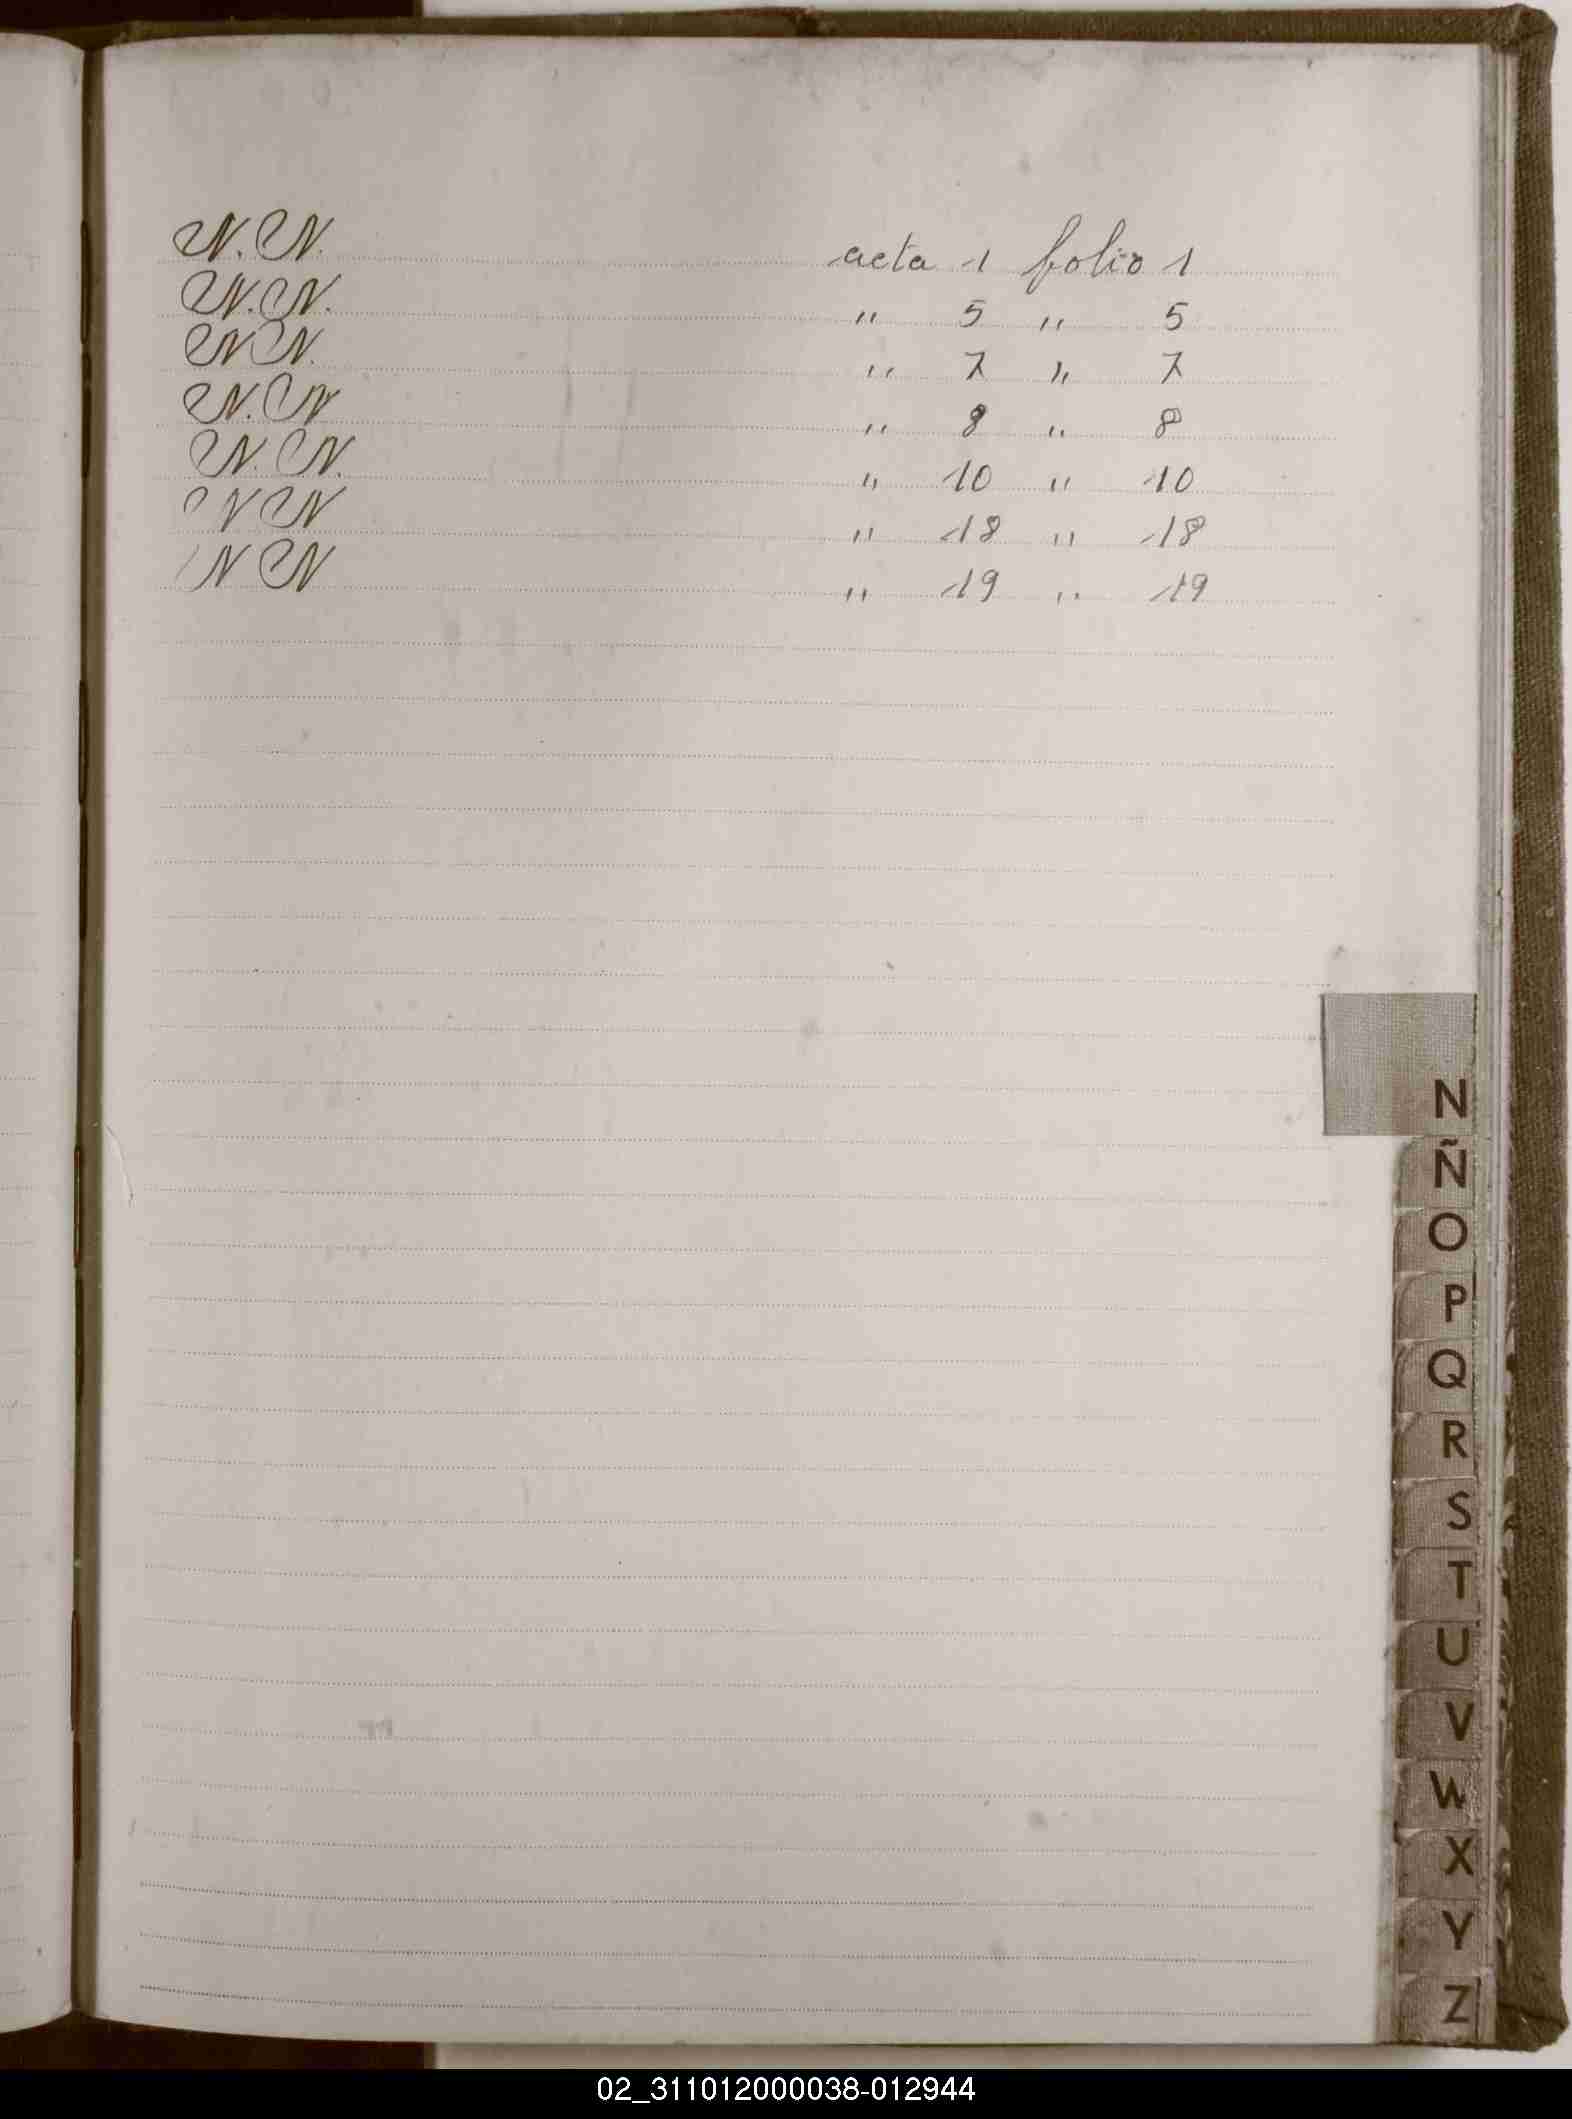 N. N. acta 1 folio 1
N. N. " 5 " 5
N N. " 7 " 7
N. N " 8 " 8
N. N. " 10 " 10
N N " 18 " 18
N N " 19 " 19
N
Ñ
O
P
Q
R
S
T
U
V
W
X
Y
Z
02_311012000038-012944